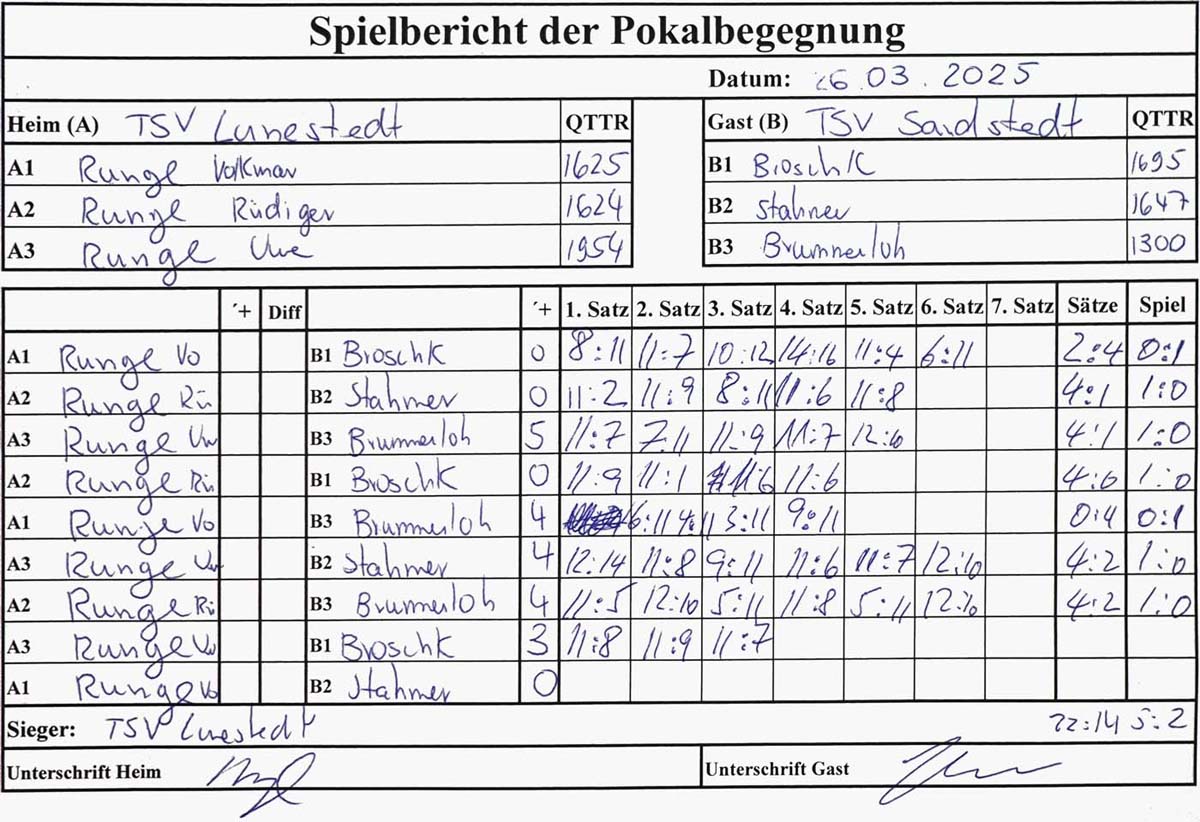 Spielbericht der Pokalbegegnung
Datum: 26.03.2025
Heim (A) TSV Lunestedt QTTR Gast (B) TSV Sandstedt QTTR
A1 Runge Volkmar 1625 B1 Broschk 1695
A2 Runge Rüdiger 1624 B2 Stahmer 1647
A3 Runge Uwe 1954 B3 Brummerloh 1300
´+ Diff ´+ 1. Satz 2. Satz 3. Satz 4. Satz 5. Satz 6. Satz 7. Satz Sätze Spiel
A1 Runge Vo B1 Broschk 0 8:11 11:7 10:12 14:16 11:4 6:11 2:4 0:1
A2 Runge Rü B2 Stahmer 0 11:2 11:9 8:11 11:6 11:8 4:1 1:0
A3 Runge Uw B3 Brummerloh 5 11:7 7:11 11:9 11:7 12:10 4:1 1:0
A2 Runge Rü B1 Broschk 0 11:9 11:1 11:6 11:6 4:0 1:0
A1 Runge Vo B3 Brummerloh 4 6:11 4:11 3:11 9:11 0:4 0:1
A3 Runge Uw B2 Stahmer 4 12:14 11:8 9:11 11:6 11:7 12:10 4:2 1:0
A2 Runge Rü B3 Brummerloh 4 11:5 12:10 5:11 11:8 5:11 12:10 4:2 1:0
A3 Runge Uw B1 Broschk 3 11:8 11:9 11:7
A1 Runge Vo B2 Stahmer 0
Sieger: TSV Lunestedt 22:14 5:2
Unterschrift Heim Unterschrift Gast